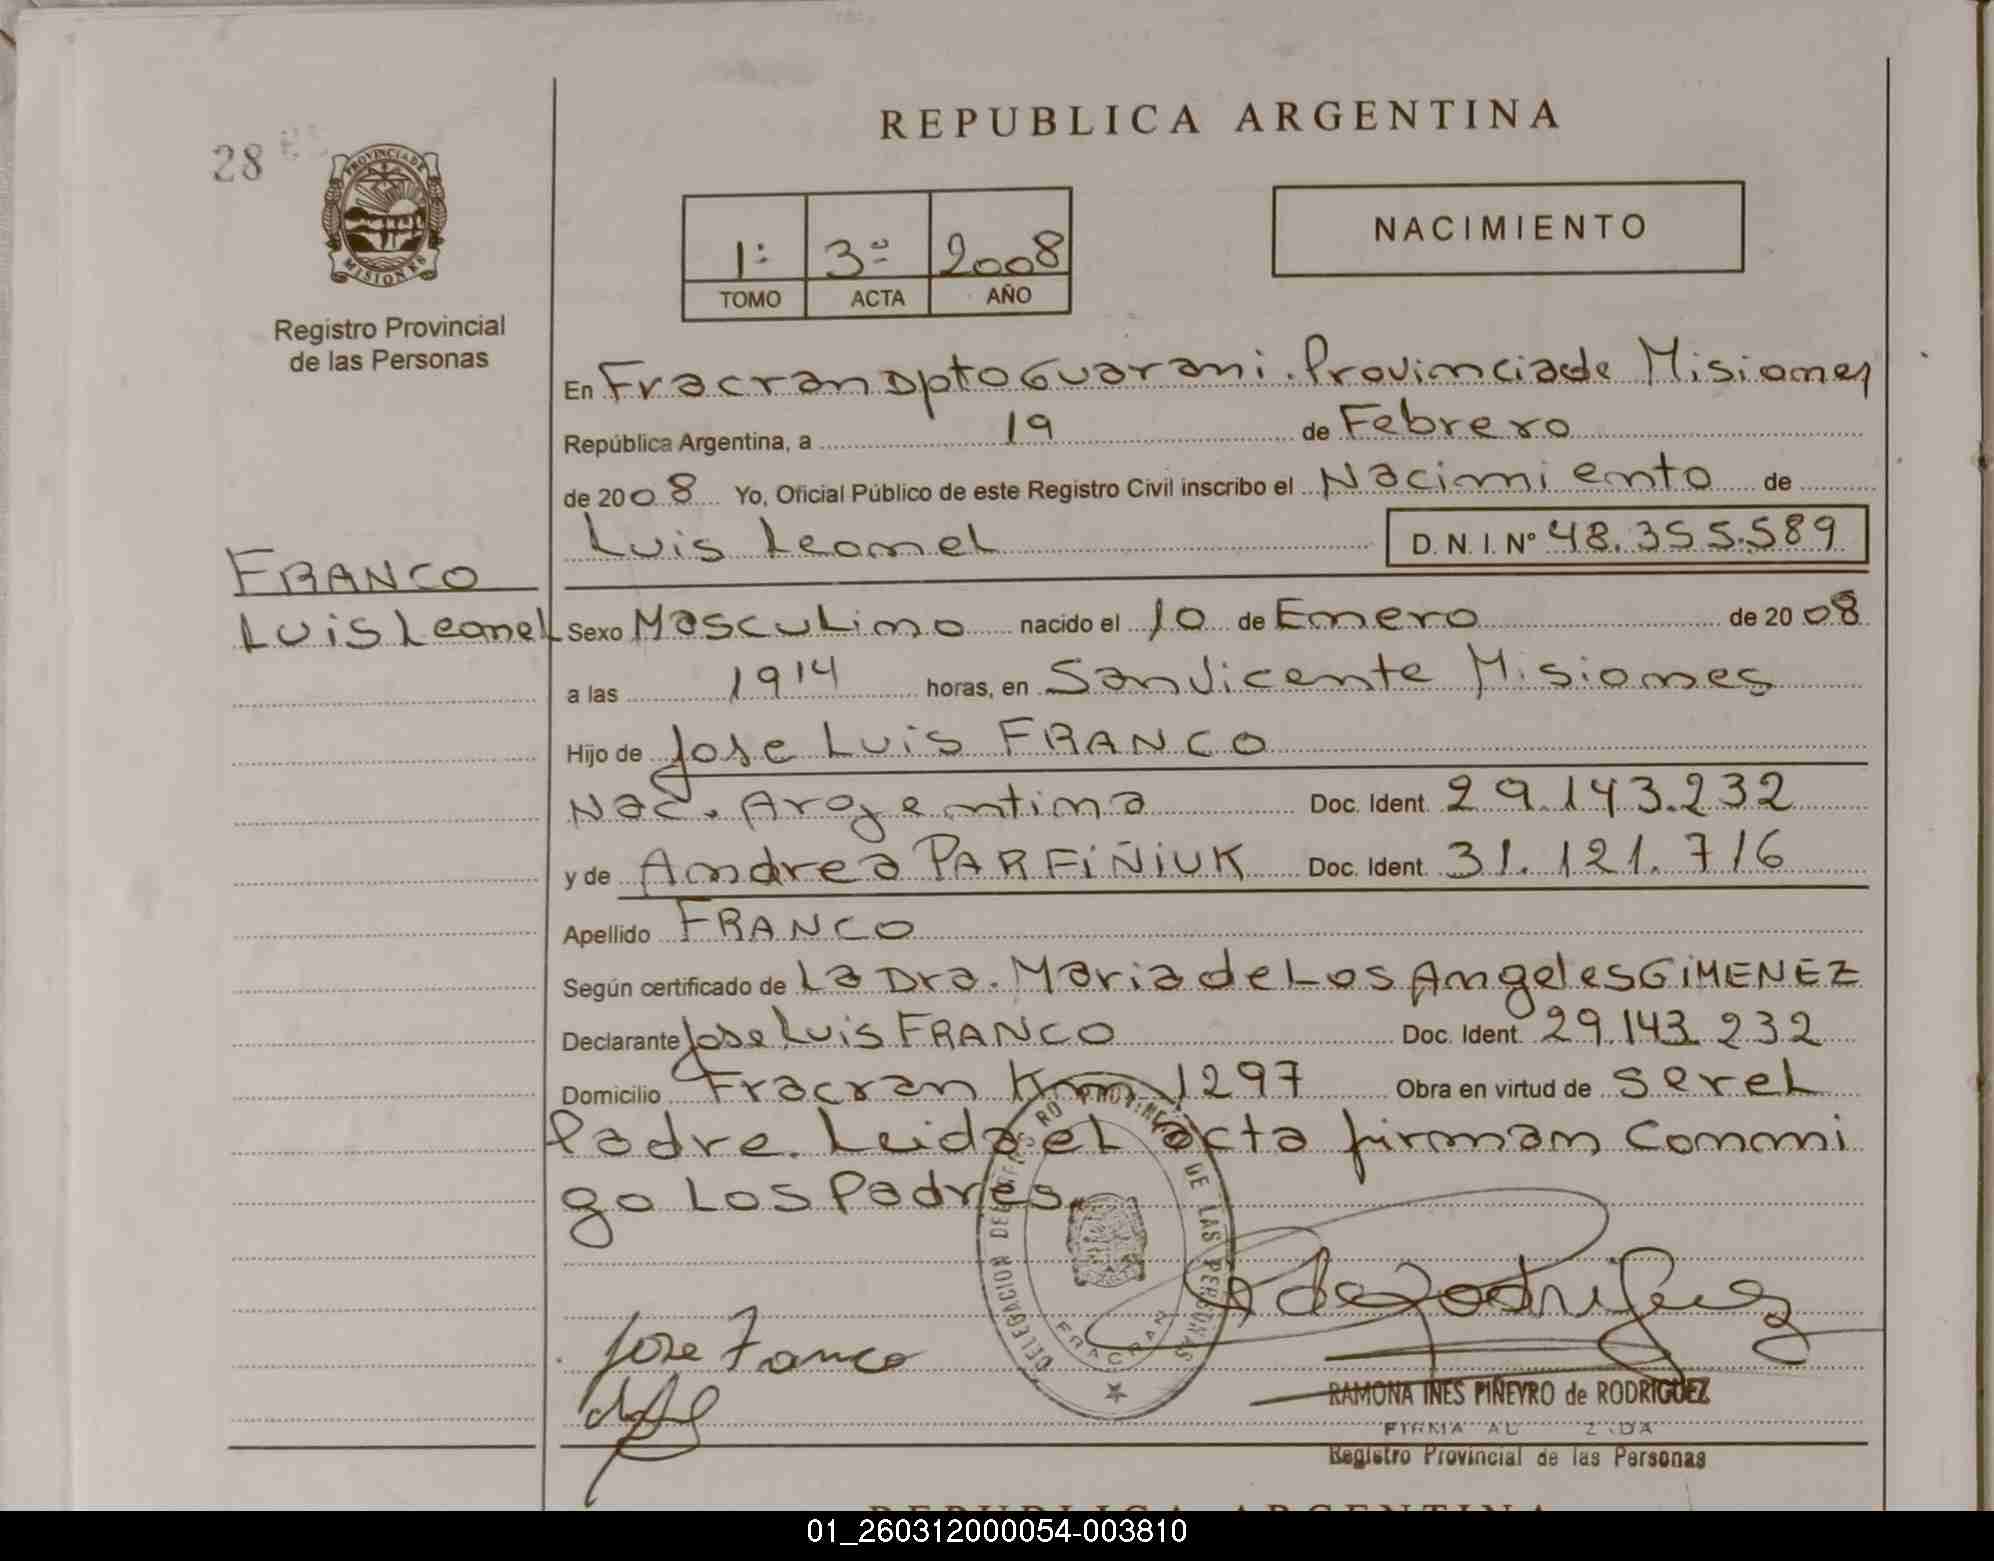 28
PROVINCIA DE
MISIONES
Registro Provincial
de las Personas
FRANCO
Luis Leonel
REPUBLICA ARGENTINA
1º 3ª 2008
TOMO ACTA AÑO
NACIMIENTO
En Fracran Dpto Guarani. Provincia de Misiones
República Argentina, a 19 de Febrero
de 2008 Yo, Oficial Público de este Registro Civil inscribo el Nacimiento de
Luis Leonel D.N.I. Nº 48.355.589
Sexo Masculino nacido el 10 de Enero de 2008
a las 1914 horas, en San Vicente Misiones
Hijo de Jose Luis FRANCO
Nac. Argentina Doc. Ident. 29.143.232
y de Andrea PARFIÑIUK Doc. Ident. 31.121.716
Apellido FRANCO
Según certificado de La Dra. Maria de Los Angeles GIMENEZ
Declarante Jose Luis FRANCO Doc. Ident. 29.143.232
Domicilio Fracran Km 1297 Obra en virtud de ser el
Padre. Leida el acta firman conmi
go Los Padres.
DELEGACION DEL REGISTRO PROVINCIAL DE LAS PERSONAS
FRACRAN
de Rodriguez
Jose Franco
RAMONA INES PIÑEYRO de RODRIGUEZ
FIRMA
Registro Provincial de las Personas
REPUBLICA ARGENTINA
01_260312000054-003810